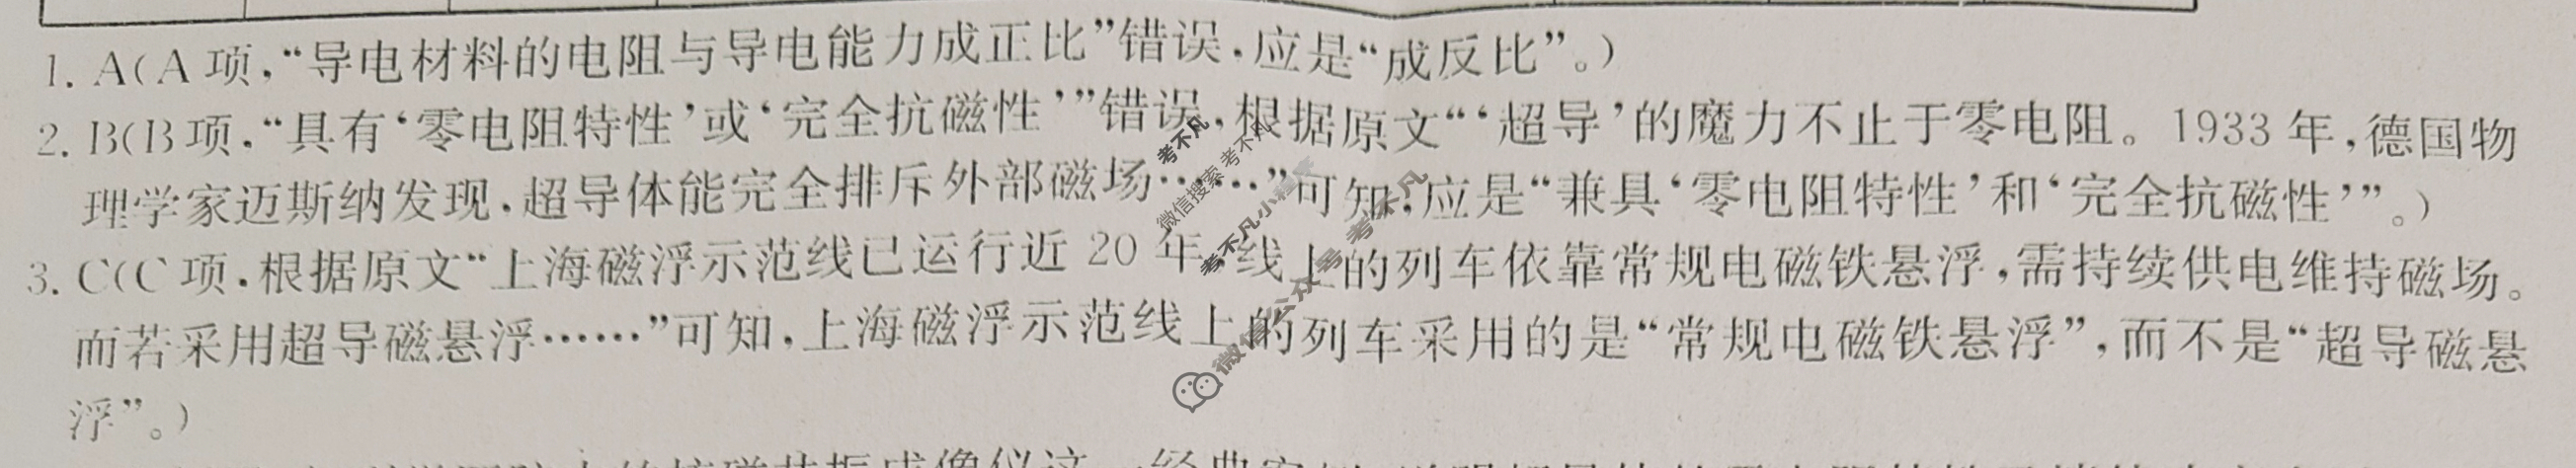 1. A(A 项,“导电材料的电阻与导电能力成正比”错误,应是“成反比”。)
2. B(B 项,“具有‘零电阻特性’或‘完全抗磁性’”错误,根据原文“‘超导’的魔力不止于零电阻。1933 年,德国物
理学家迈斯纳发现,超导体能完全排斥外部磁场……”可知,应是“兼具‘零电阻特性’和‘完全抗磁性’”。)
3. C(C 项,根据原文“上海磁浮示范线已运行近 20 年,线上的列车依靠常规电磁铁悬浮,需持续供电维持磁场。
而若采用超导磁悬浮……”可知,上海磁浮示范线上的列车采用的是“常规电磁铁悬浮”,而不是“超导磁悬
浮”。)
考不凡
微信搜索 考不凡
考不凡小程序
微信公众号 考不凡